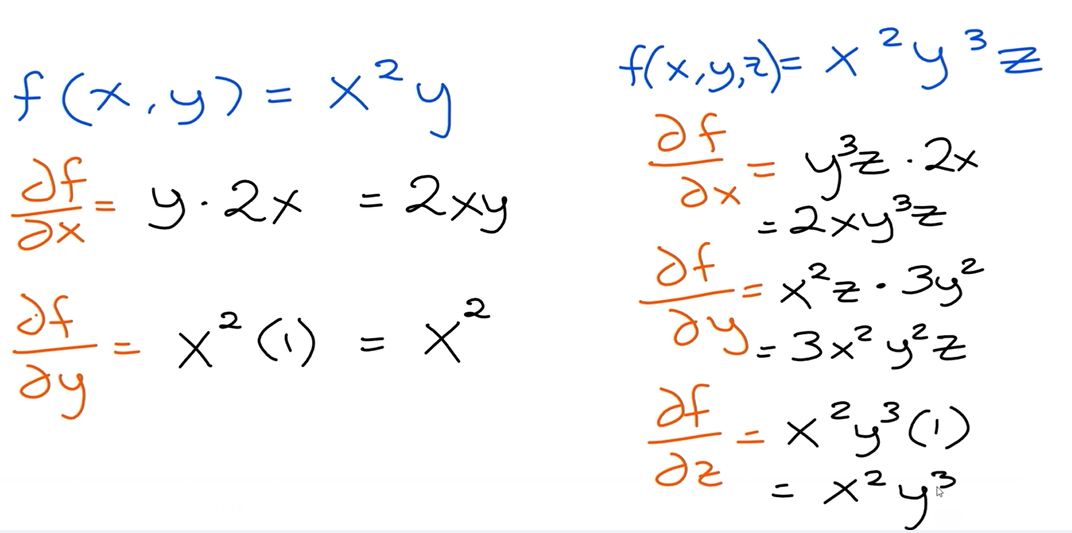 f(x,y) = x²y
∂f/∂x = y · 2x = 2xy
∂f/∂y = x²(1) = x²
f(x,y,z) = x²y³z
∂f/∂x = y³z · 2x
= 2xy³z
∂f/∂y = x²z · 3y²
= 3x²y²z
∂f/∂z = x²y³(1)
= x²y³